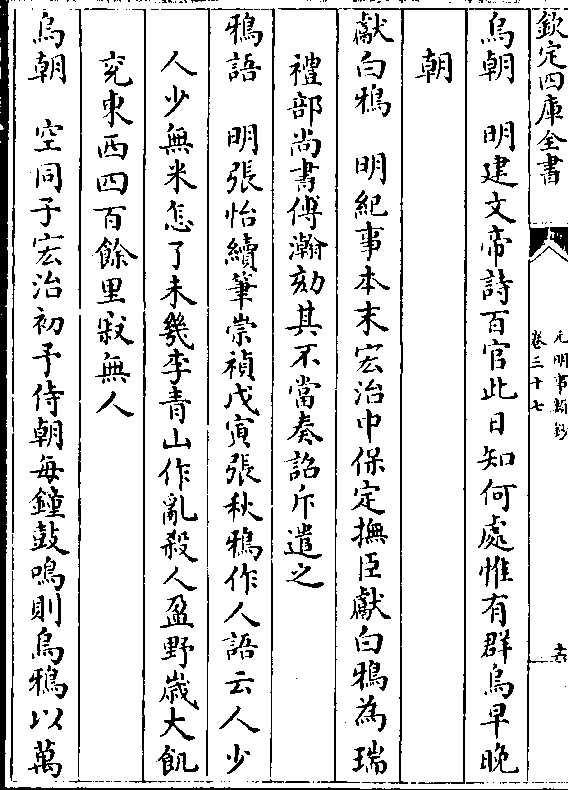 欽定四庫全書
元明事類鈔
卷三十七
十六
烏朝　明建文帝詩百官此日知何處惟有群烏早晚
朝
獻白鴉　明紀事本末宏治中保定撫臣獻白鴉為瑞
禮部尚書傅瀚劾其不當奏詔斥遣之
鴉語　明張怡續筆崇禎戊寅張秋鴉作人語云人少
人少無米怎了未幾李青山作亂殺人盈野歲大飢
兗東西四百餘里寂無人
烏朝　空同子宏治初予侍朝每鐘鼓鳴則烏鴉以萬